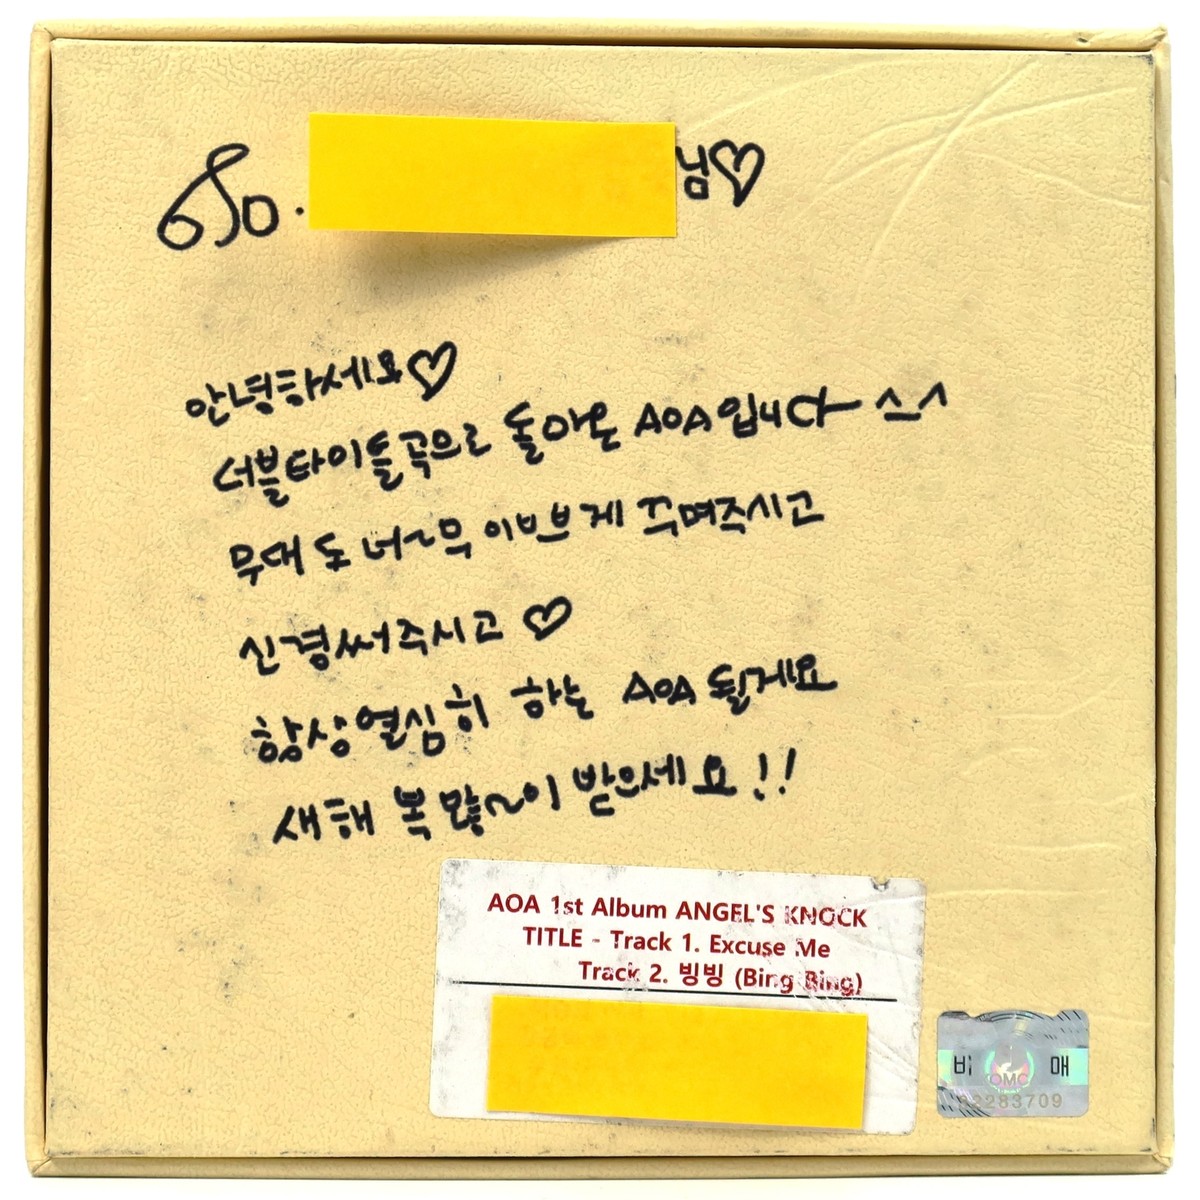 To. 님♡
안녕하세요♡
더블타이틀곡으로 돌아온 AOA입니다~ ^_^
무대도 너~무 이쁘게 꾸며주시고
신경써주시고 ♡
항상 열심히 하는 AOA 될게요
새해 복 많~이 받으세요!!
AOA 1st Album ANGEL'S KNOCK
TITLE - Track 1. Excuse Me
Track 2. 빙빙 (Bing Bing)
비 매
KOMCA